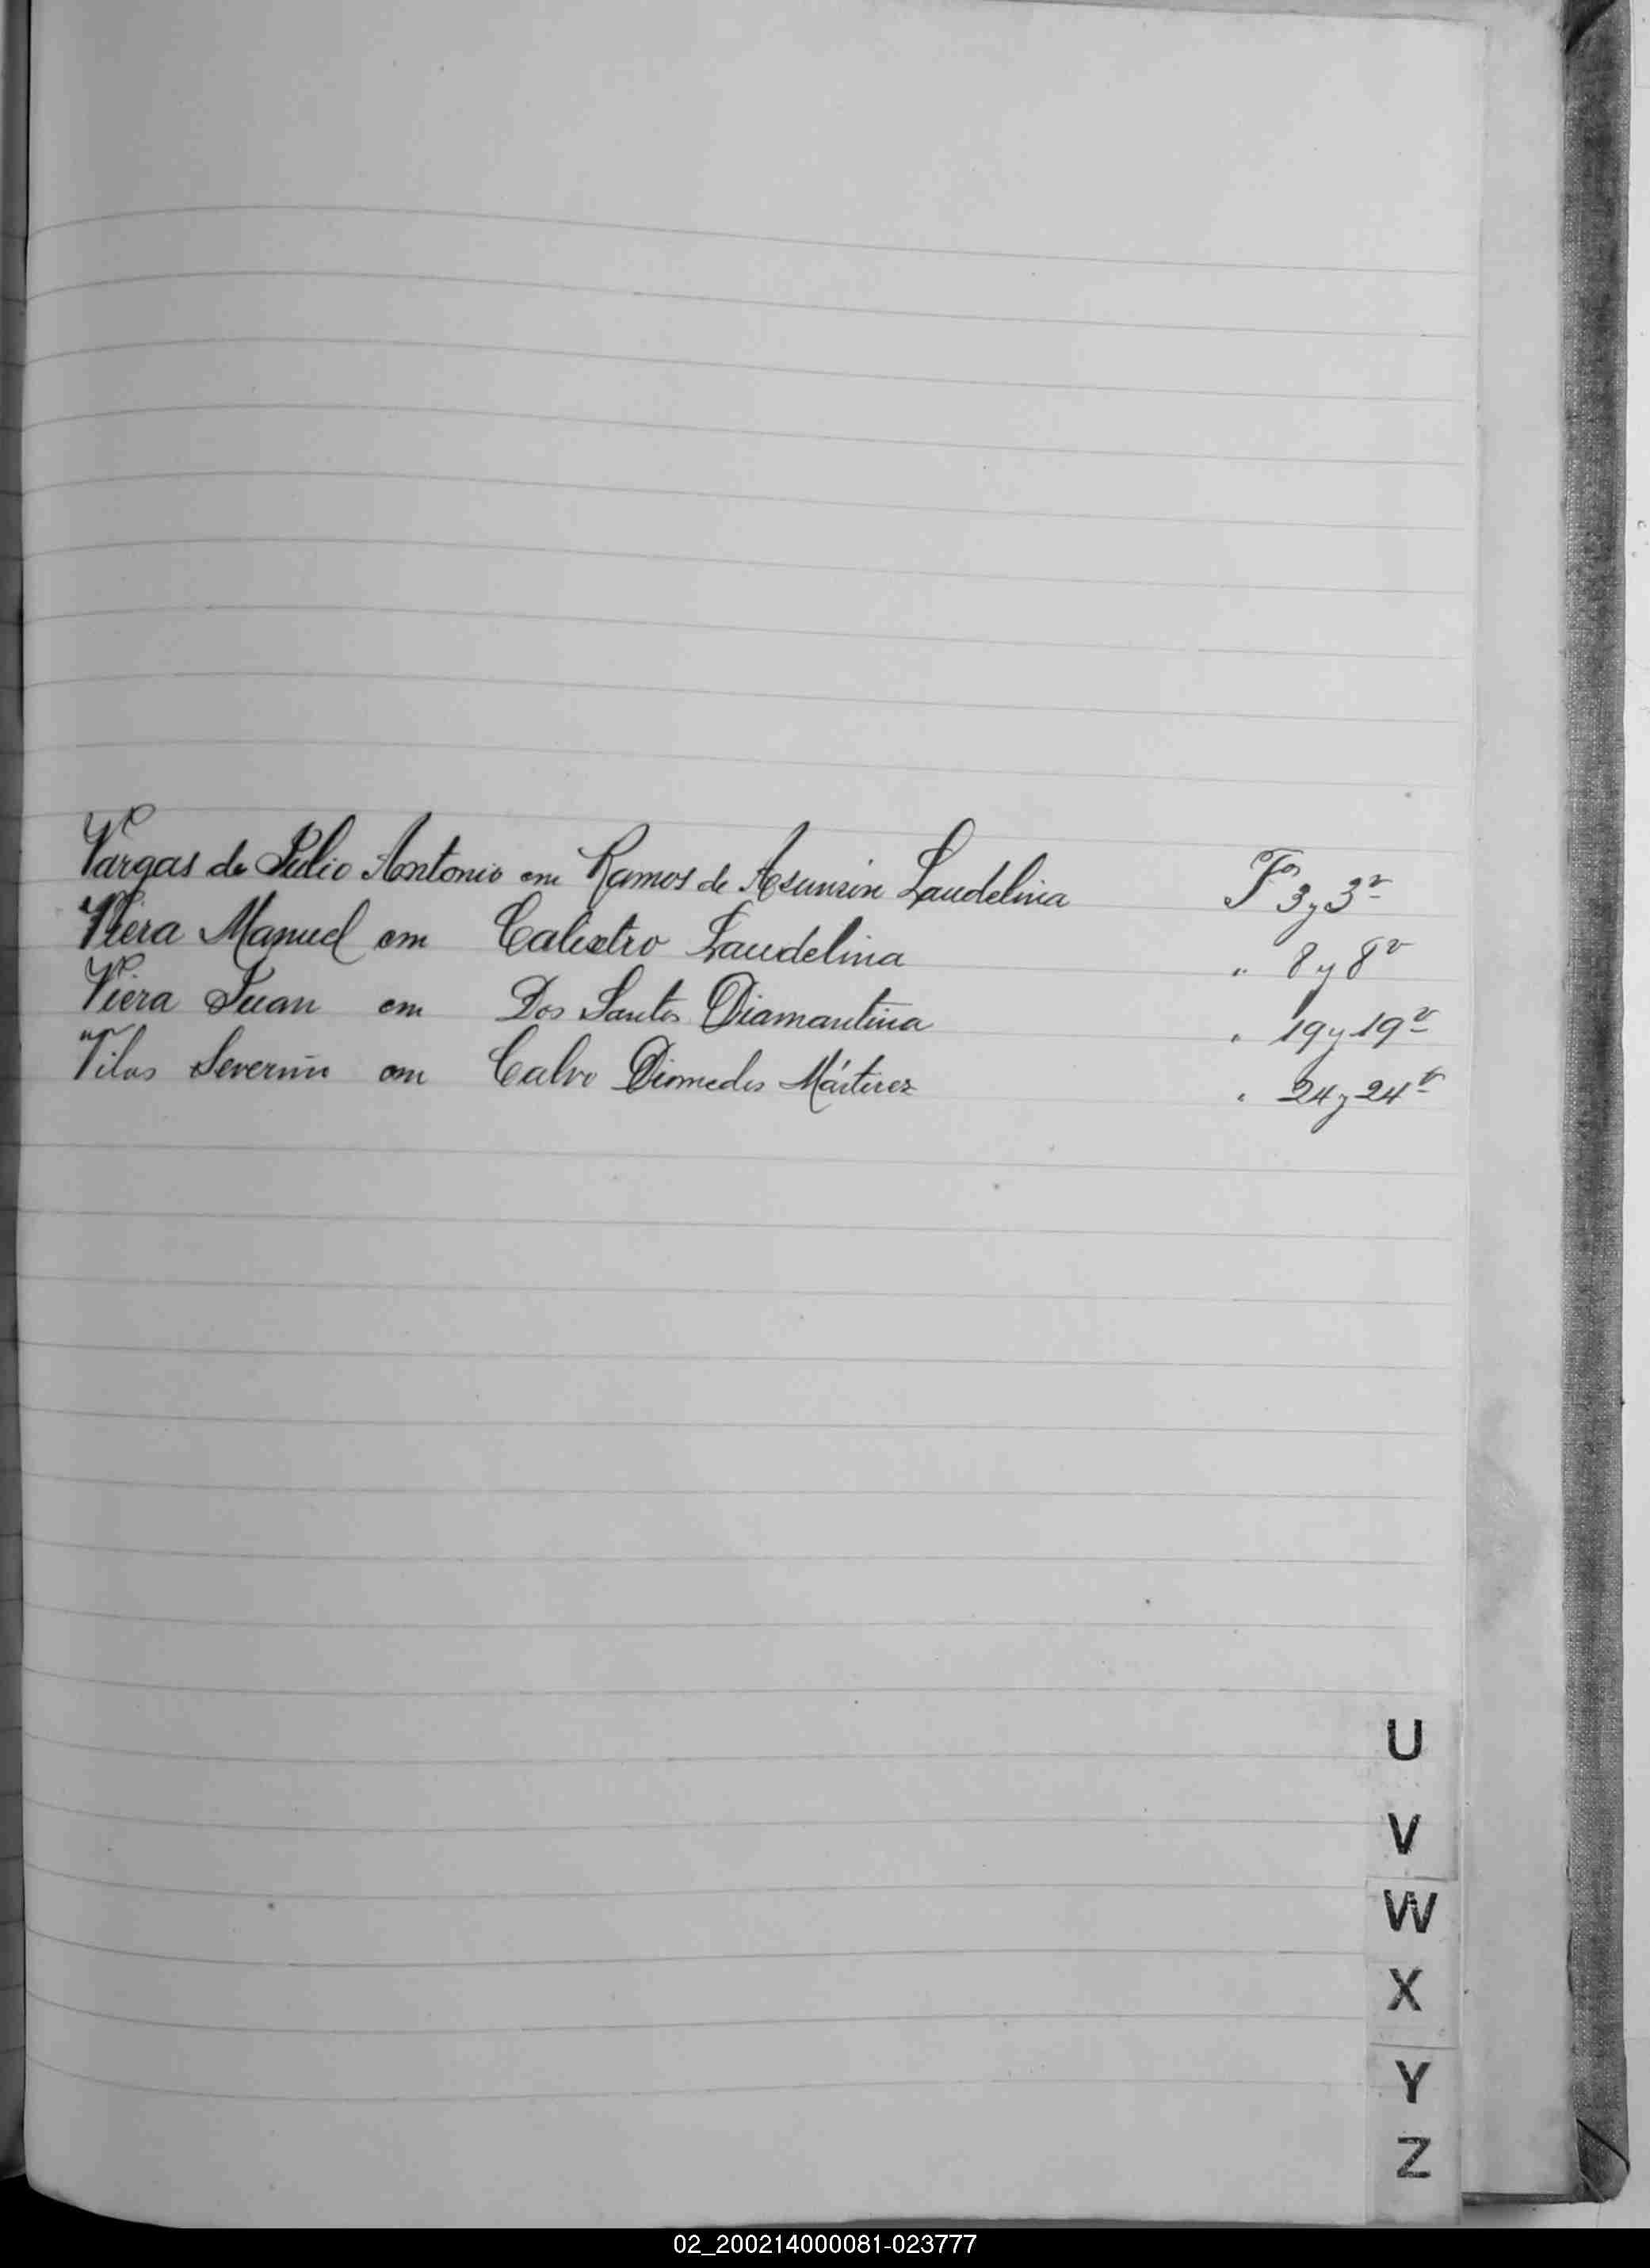 Vargas de Julio Antonio con Ramos de Asunción Laudelina Fos 3 y 3v
Viera Manuel con Calixtro Laudelina " 8 y 8v
Viera Juan con Dos Santos Diamantina " 19 y 19v
Vilas Severino con Calvo Diomedes Mártires " 24 y 24v
U
V
W
X
Y
Z
02_200214000081-023777